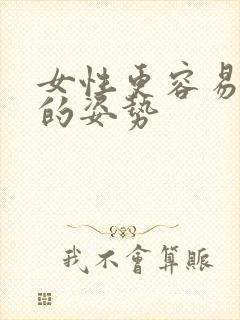 女性更容易
的姿势
我不會算賬